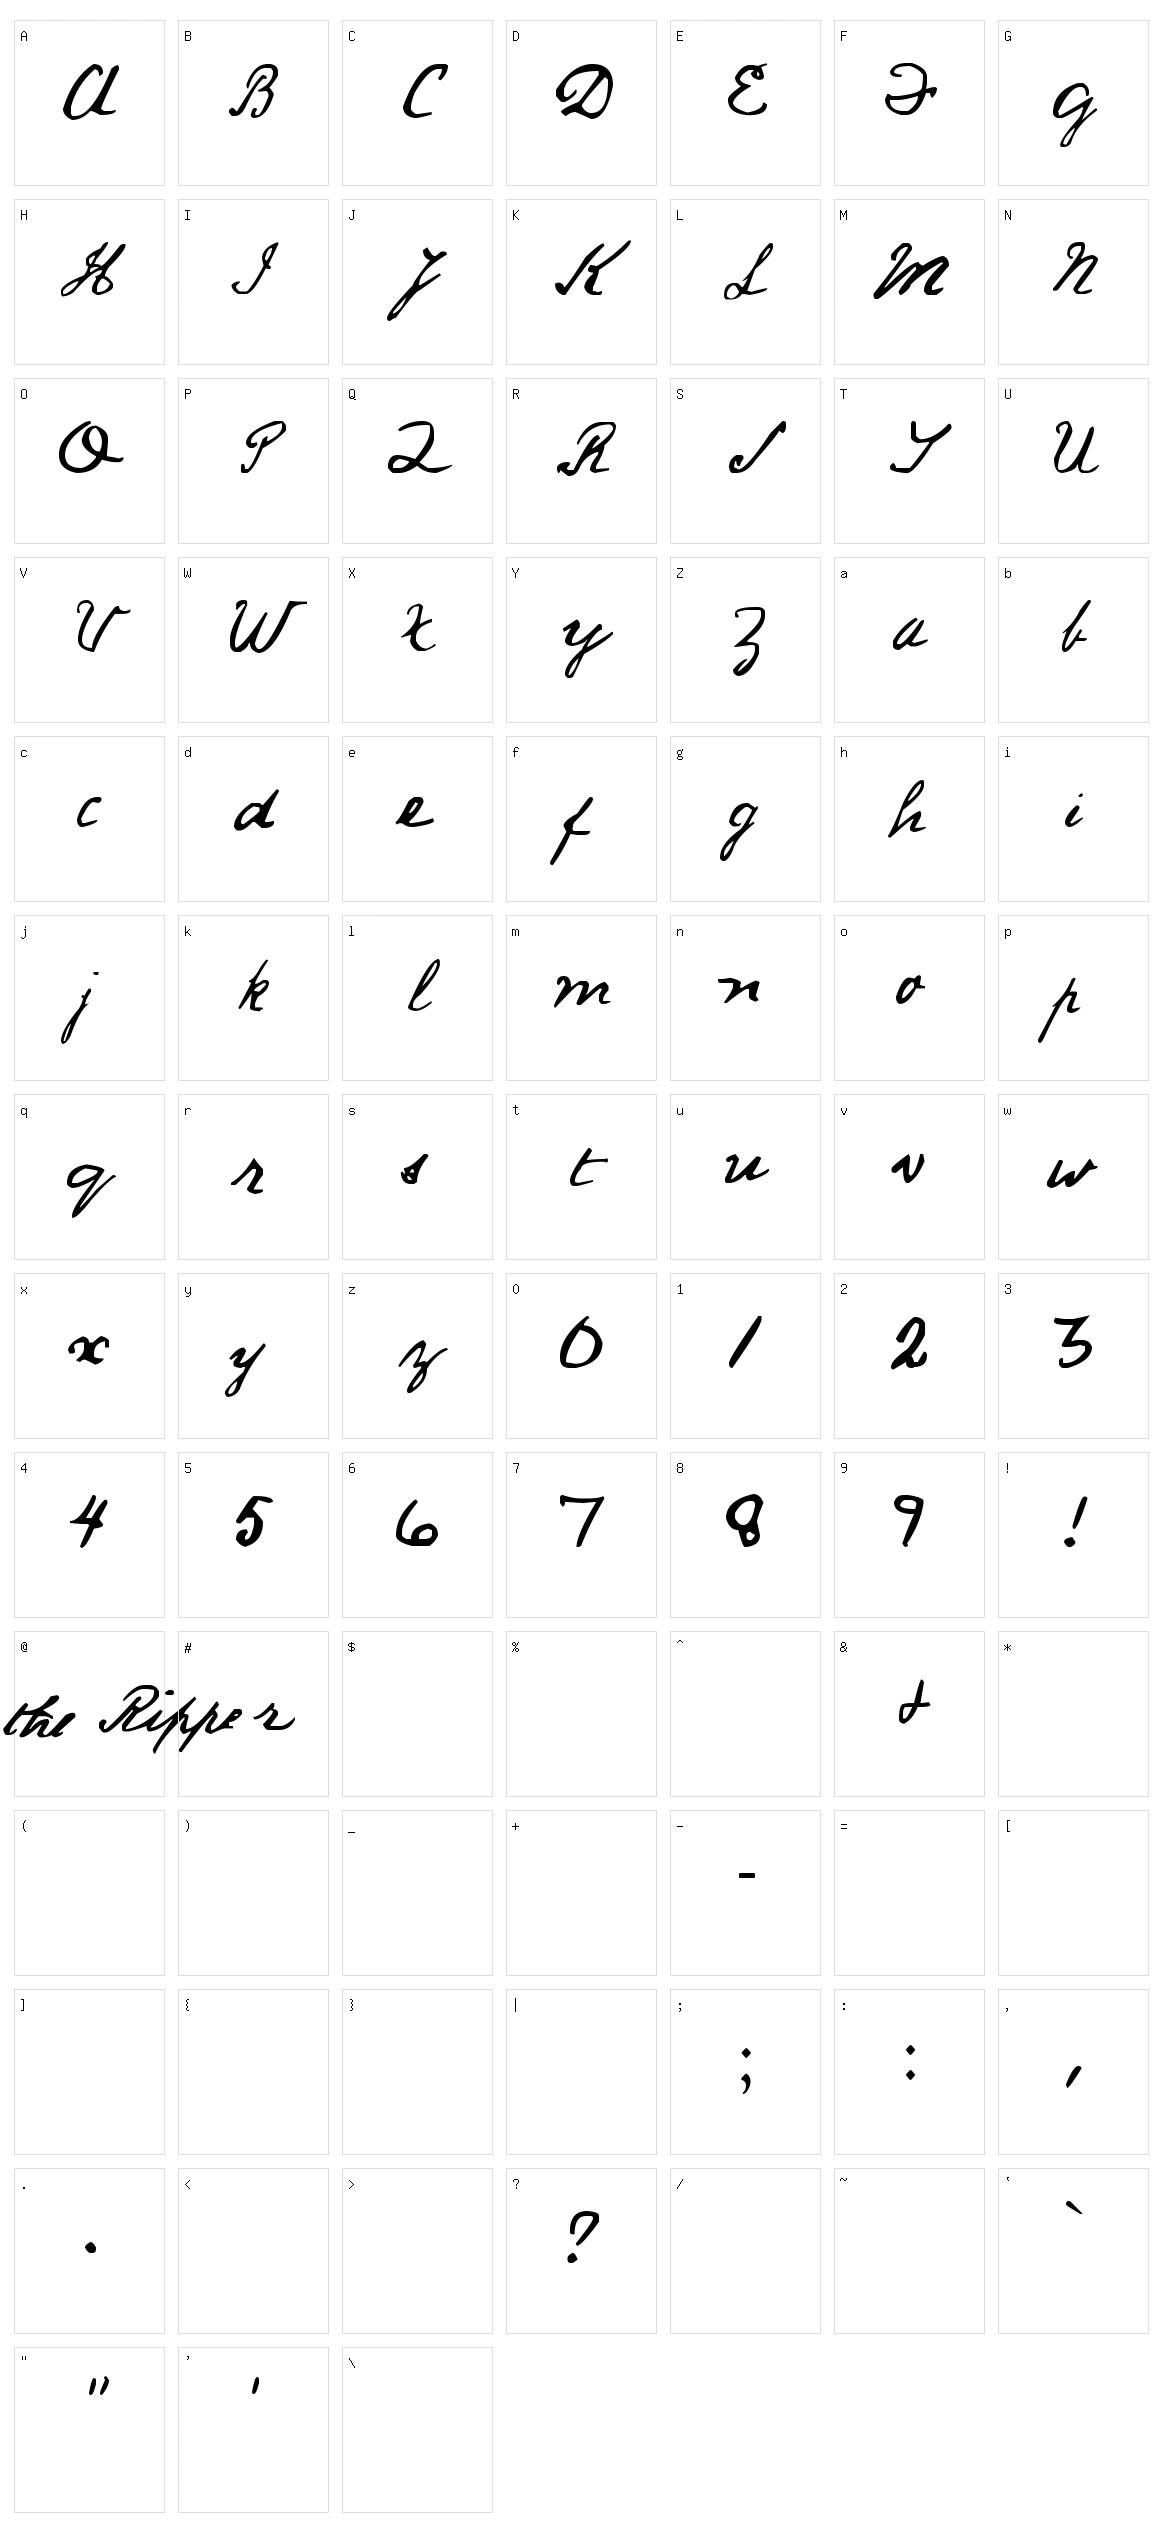 A B C D E F G
A B C D E F G
H I J K L M N
H I J K L M N
O P Q R S T U
O P Q R S T U
V W X Y Z a b
V W X Y Z a b
c d e f g h i
c d e f g h i
j k l m n o p
j k l m n o p
q r s t u v w
q r s t u v w
x y z 0 1 2 3
x y z 0 1 2 3
4 5 6 7 8 9 !
4 5 6 7 8 9 !
@ # $ % ^ & *
the Ripper &
( ) _ + - = [
-
] { } | ; : ,
; : ,
. < > ? / ~ ‛
. ? `
" ' \
" '